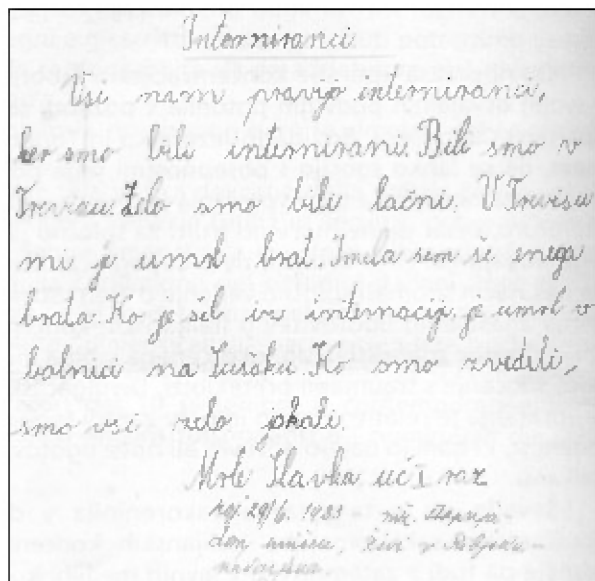 Interniranci
Vsi nam pravijo interniranci,
ker smo bili internirani. Bili smo v
Trevisu. Zelo smo bili lačni. V Trevisu
mi je umrl brat. Imela sem še enega
brata. Ko je šel iz internacije je umrl v
bolnici na Sušaku. Ko smo zvedeli,
smo vsi zelo jokali.
Mrle Slavka uč. I raz
roj 29/6. 1933
don živi v